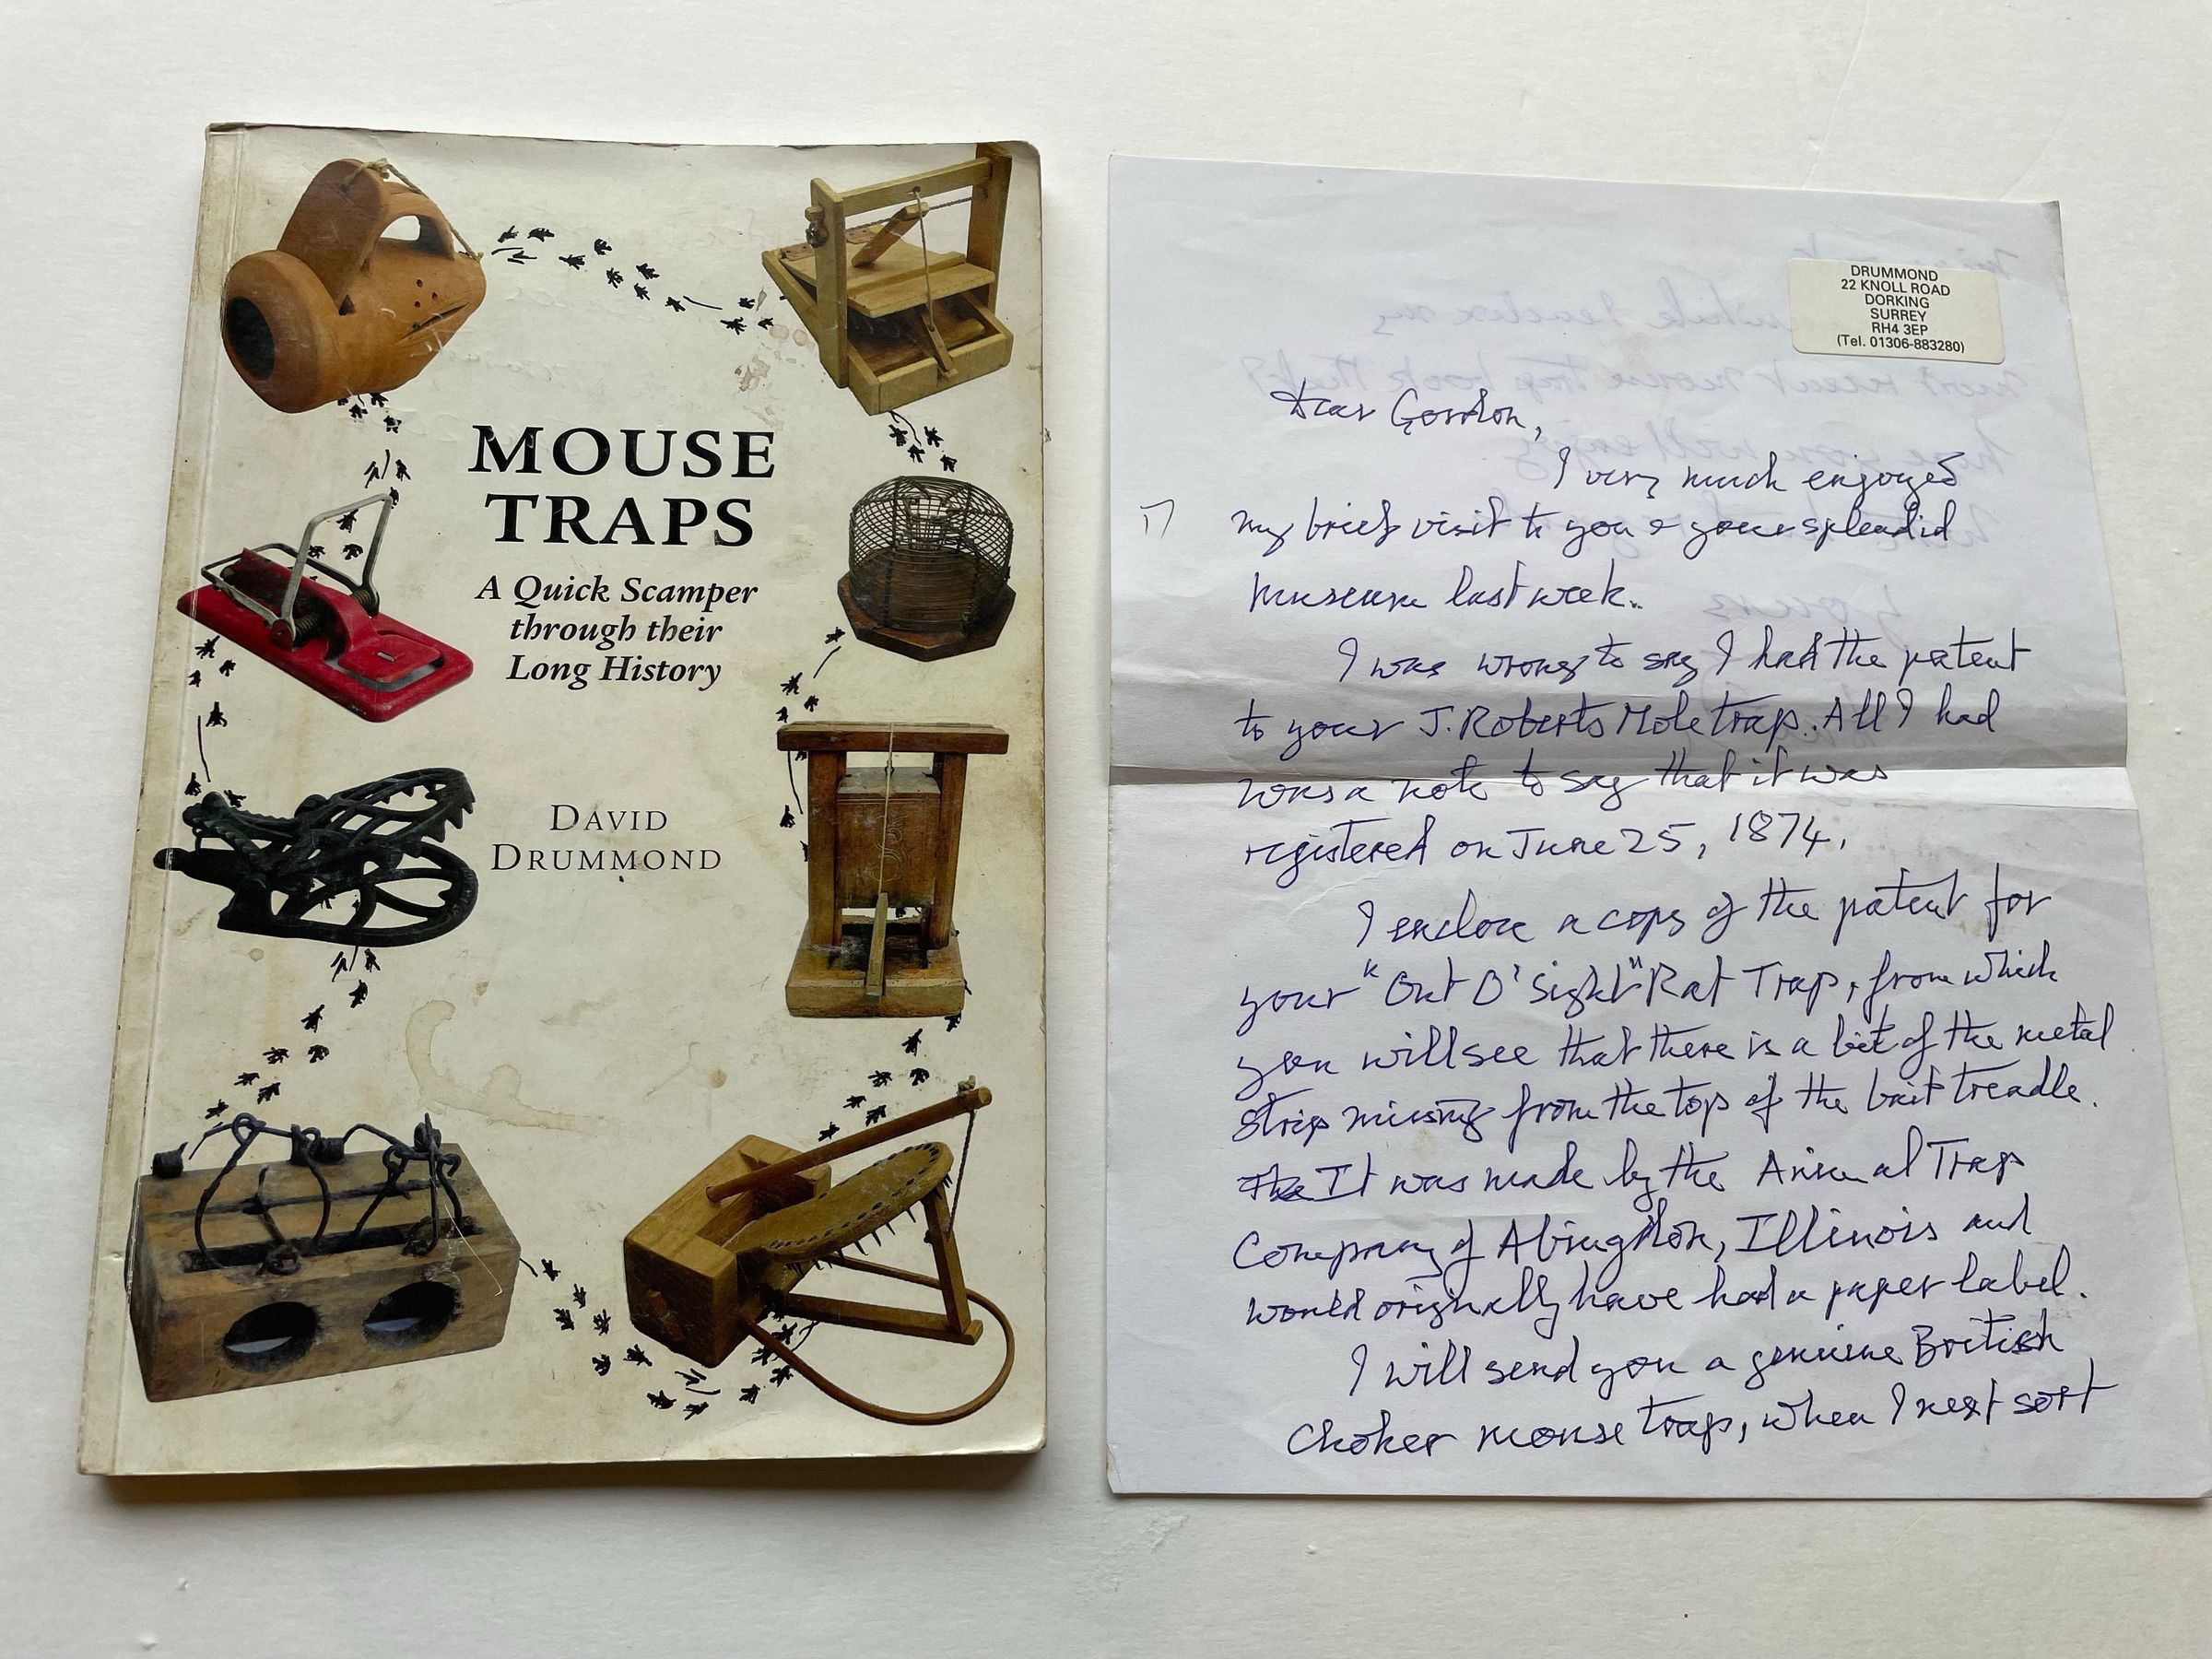 MOUSE
TRAPS
A Quick Scamper
through their
Long History
DAVID
DRUMMOND
DRUMMOND
22 KNOLL ROAD
DORKING
SURREY
RH4 3EP
(Tel. 01306-883280)
Dear Gordon,
I very much enjoyed
my brief visit to you & your splendid
museum last week.
I was wrong to say I had the patent
to your J. Roberts Mole trap. All I had
was a note to say that it was
registered on June 25, 1874.
I enclose a copy of the patent for
your "Out O' Sight" Rat Trap, from which
you will see that there is a bit of the metal
strip missing from the top of the bait treadle.
The It was made by the Animal Trap
Company of Abingdon, Illinois and
would originally have had a paper label.
I will send you a genuine British
Choker mouse trap, when I next sort